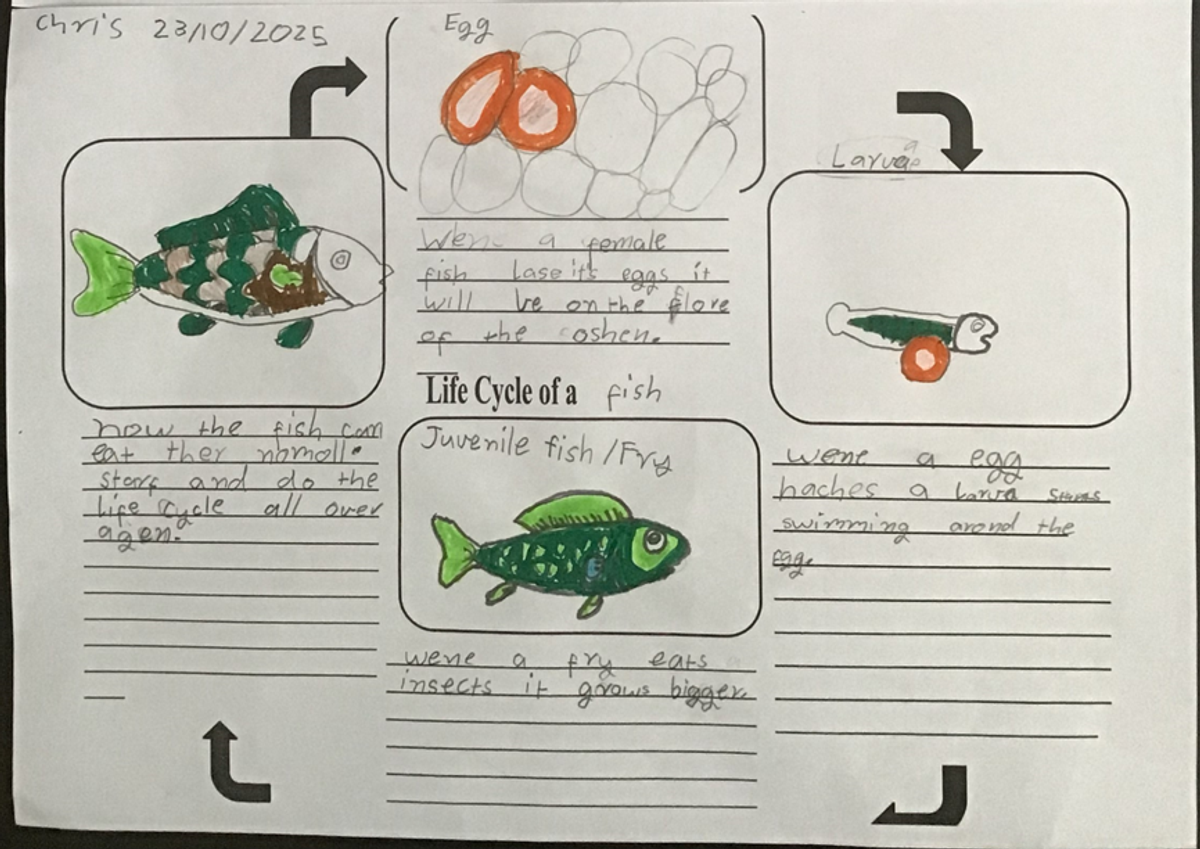 Chris 23/10/2025
Egg
Wen a female
fish lase it's eggs it
will be on the flore
of the oshen.
Larva
wene a egg
haches a larva starts
swimming arond the
egg.
Life Cycle of a fish
Juvenile fish / Fry
wene a fry eats
insects it grows bigger.
now the fish can
eat ther nomoll
storf and do the
life cycle all over
agen.